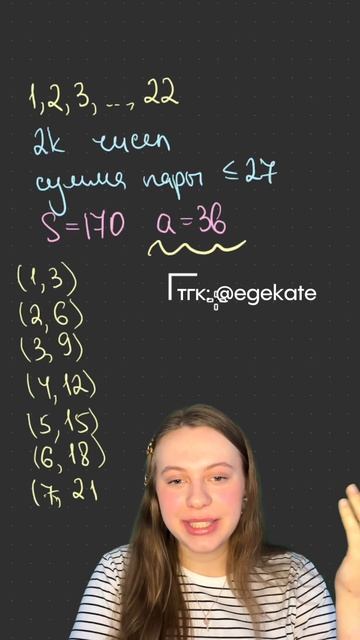 1, 2, 3, ..., 22
2k чисел
сумма пары ≤ 27
S = 170 a = 3b
тгк: @egekate
(1, 3)
(2, 6)
(3, 9)
(4, 12)
(5, 15)
(6, 18)
(7, 21